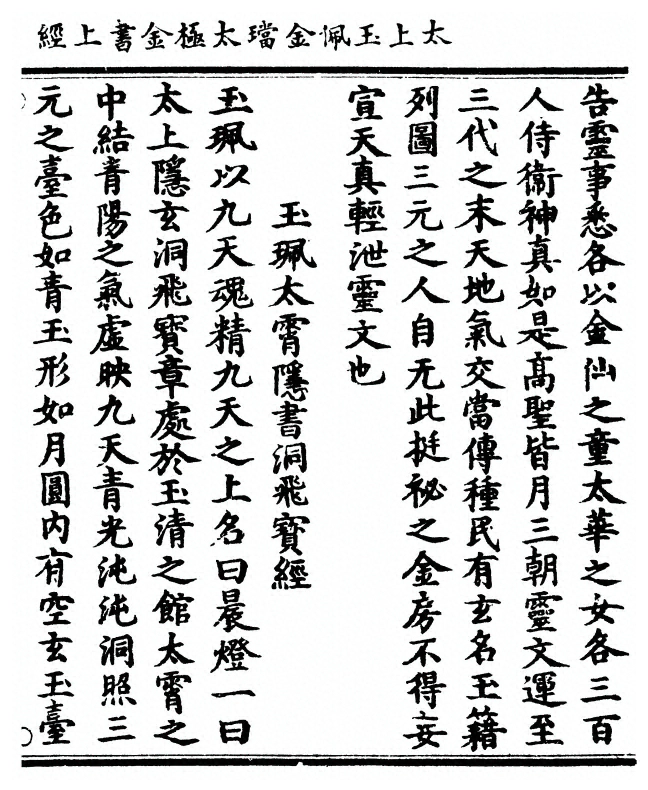 太上玉佩金璫太極金書上經
告靈事悉各以金仙之童太華之女各三百
人侍衛神真如是髙聖皆月三朝靈文運至
三代之末天地氣交當傳種民有玄名玉籍
列圖三元之人自无此挺祕之金房不得妄
宣天真輕泄靈文也
玉珮太霄隱書洞飛寶經
玉珮以九天魂精九天之上名曰晨燈一曰
太上隱玄洞飛寶章處於玉清之館太霄之
中結青陽之氣虛映九天青光沌沌洞照三
元之臺色如青玉形如月圓内有空玄玉臺